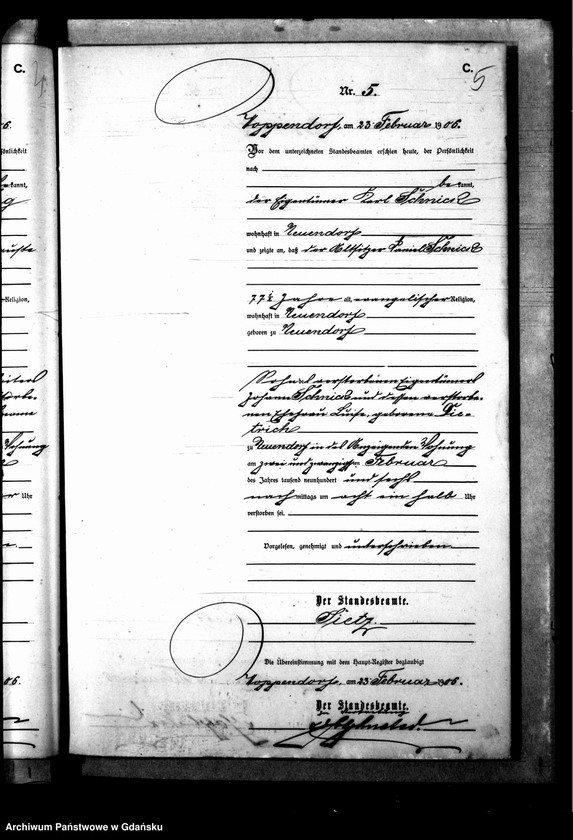 C.
5
Nr. 5.
am 23 Februar 1906.
Vor dem unterzeichneten Standesbeamten erschien heute, der Persönlichkeit
nach
bekannt,
der Eigentümer Karl
wohnhaft in Neuendorf
und zeigte an, daß der Altsitzer Daniel
77½ Jahre alt, evangelischer Religion,
wohnhaft in Neuendorf
geboren zu Neuendorf
Sohn des verstorbenen Eigentümers
Johann und dessen verstorbe-
nen Ehefrau Luise, geborene Die-
trich
zu Neuendorf in des Anzeigenden Wohnung
am zwei und zwanzigsten Februar
des Jahres tausend neunhundert und sechs
nachmittags um acht ein halb Uhr
verstorben sei.
Vorgelesen, genehmigt und unterschrieben
Der Standesbeamte.
Tietz.
Die Übereinstimmung mit dem Haupt-Register beglaubigt
am 23 Februar 1906.
Der Standesbeamte.
C.
06.
önlichkeit
kannt,
Religion,
Uhr
06.
Archiwum Państwowe w Gdańsku